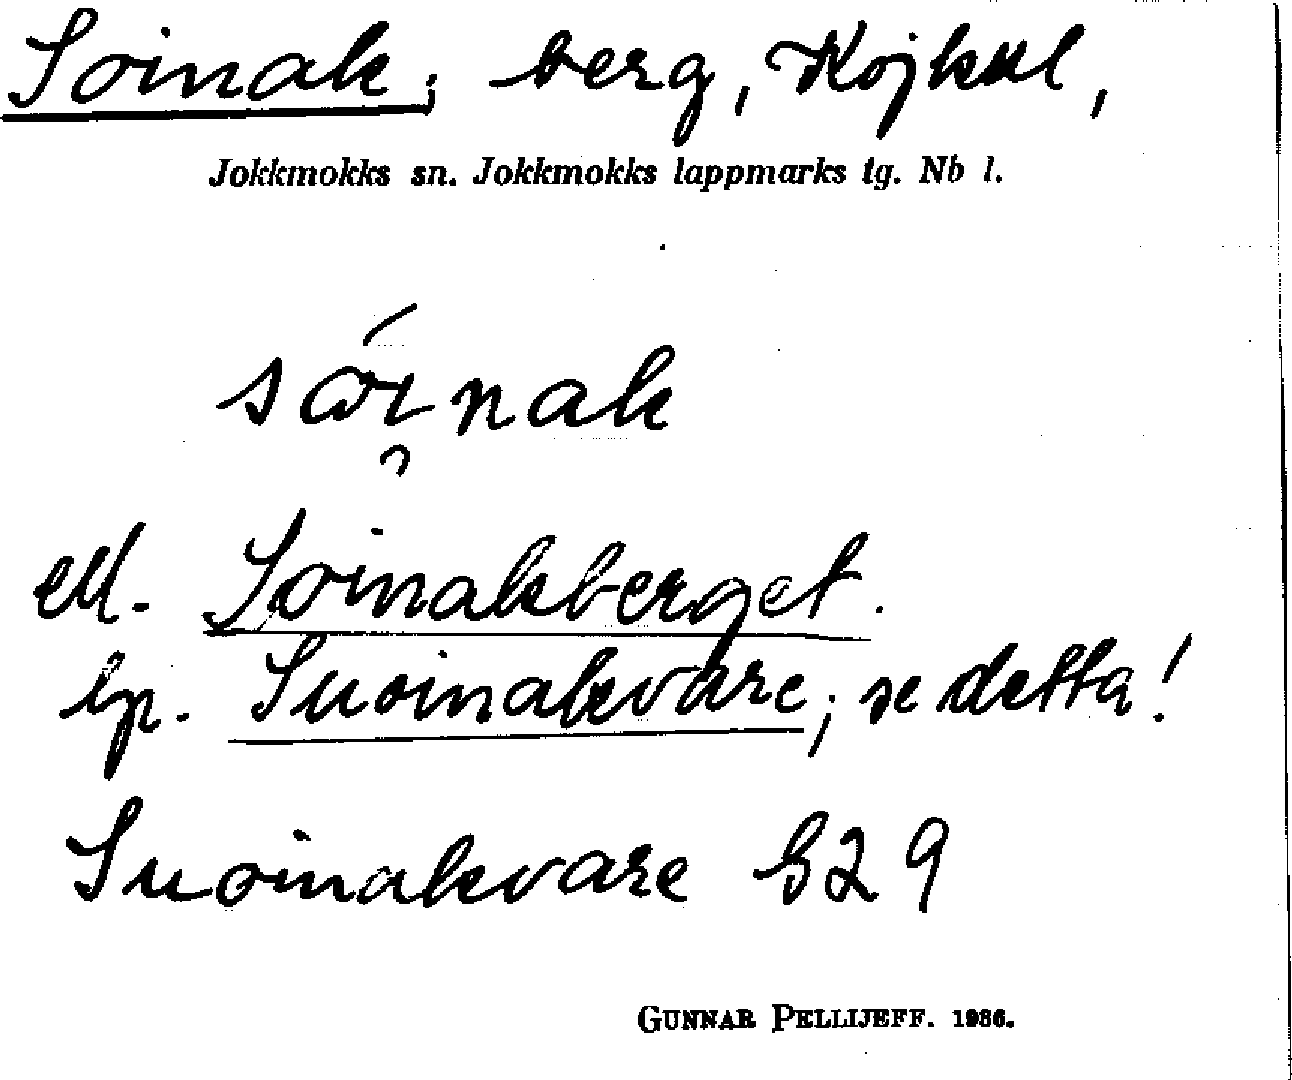 Soinak, berg, Kojkul,
Jokkmokks sn. Jokkmokks lappmarks tg. Nb l.
nak
ell. Soinakberget.
lp. Suoinakvare; se detta!
Suoinakvare
GUNNAR PELLIJEFF. 1986.